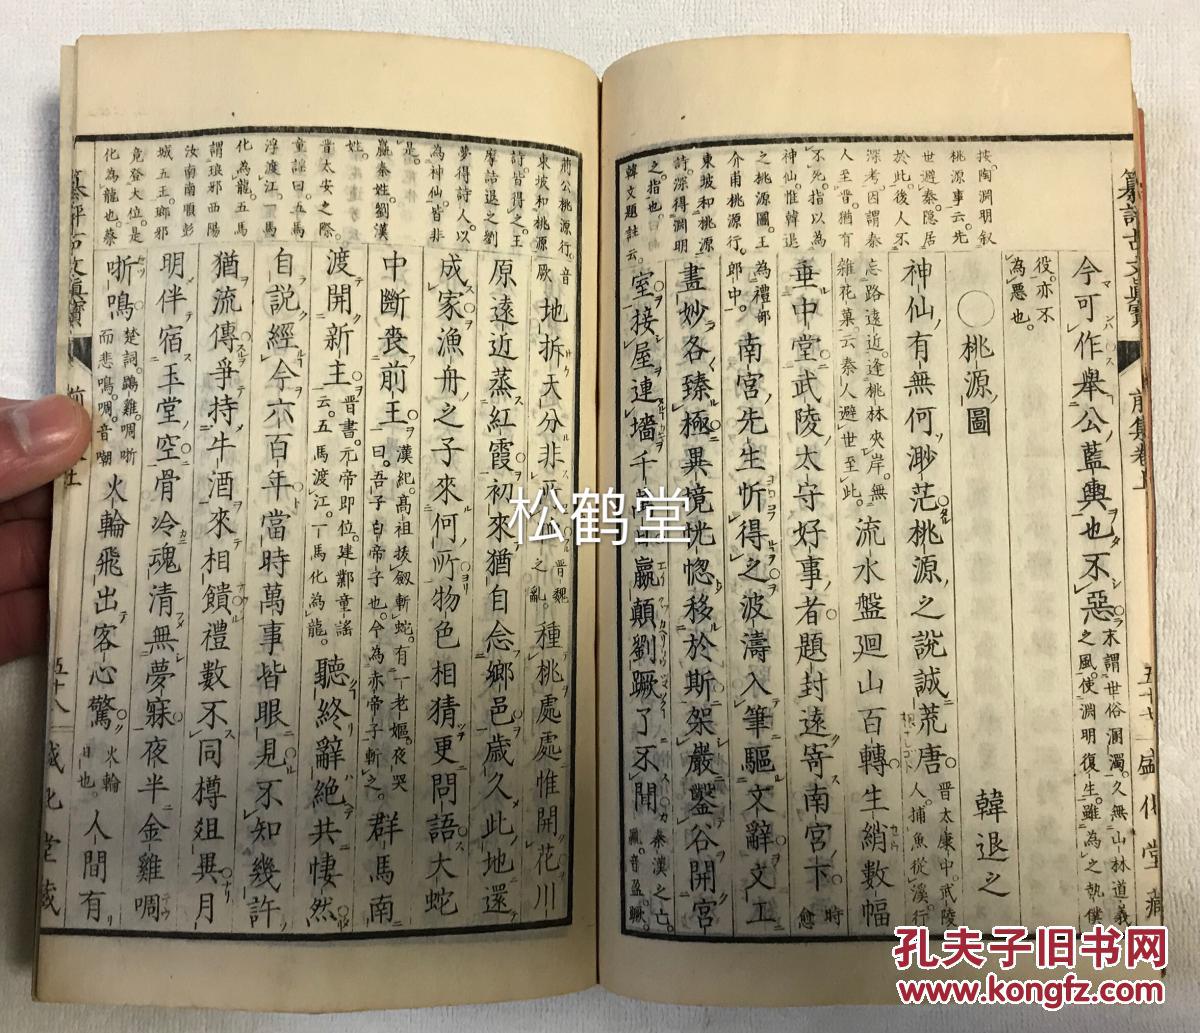 今可作舉公藍輿也不惡末謂世俗溷濁久無山林道義之風使淵明復生雖為之執僕
役亦不為惡也
○桃源圖 韓退之
神仙有無何渺茫桃源之說誠荒唐晉太康中武陵人捕魚從溪行
忘路遠近逢桃林夾岸無雜花菓云秦人避世至此流水盤廻山百轉生綃數幅
垂中堂武陵太守好事者題封遠寄南宮下時愈
為禮部郎中南宮先生忻得之波濤入筆驅文辭文工
畫妙各臻極異境恍惚移於斯架巖鑿谷開宮
室接屋連墻千萬日嬴顛劉蹶了不聞秦漢之亡
按陶淵明叙
桃源事云先
世避秦隐居
於此後人不
深考因謂秦
人至晉猶有
不死指以為
神仙惟韓退
之桃源圖王
介甫桃源行
東坡和桃源
詩深得淵明
之指也
韓文題註云
纂評古文眞寶 前集卷上 五十七 盛化堂藏
地拆天分非
晉魏之亂種桃處處惟開花川
原遠近蒸紅霞初來猶自念鄉邑歲久此地還
成家漁舟之子來何所物色相猜更問語大蛇
中斷喪前王漢紀高祖拔劔斬蛇有一老嫗夜哭曰吾子白帝子也今為赤帝子斬之群馬南
渡開新主晋書元帝即位建鄴童謠云五馬渡江一馬化為龍聽終辭絶共悽然
自說經今六百年當時萬事皆眼見不知幾許
猶流傳爭持牛酒來相饋禮數不同樽爼異月
明伴宿玉堂空骨冷魂清無夢寐夜半金雞啁
哳鳴楚詞鵾雞啁哳而悲鳴啁音嘲火輪飛出客心驚火輪日也人間有
荊公桃源行
東坡和桃源
詩皆得之王
摩詰退之劉
夢得詩人以
為神仙皆非
是
嬴秦姓劉漢
姓
晉太安之際
童謡曰五馬
浮渡江一馬
化為龍五馬
謂琅邪西陽
汝南南頓彭
城五王瑯邪
竟登大位是
化為龍也蔡
五十八
松鹤堂
孔夫子旧书网
www.kongfz.com